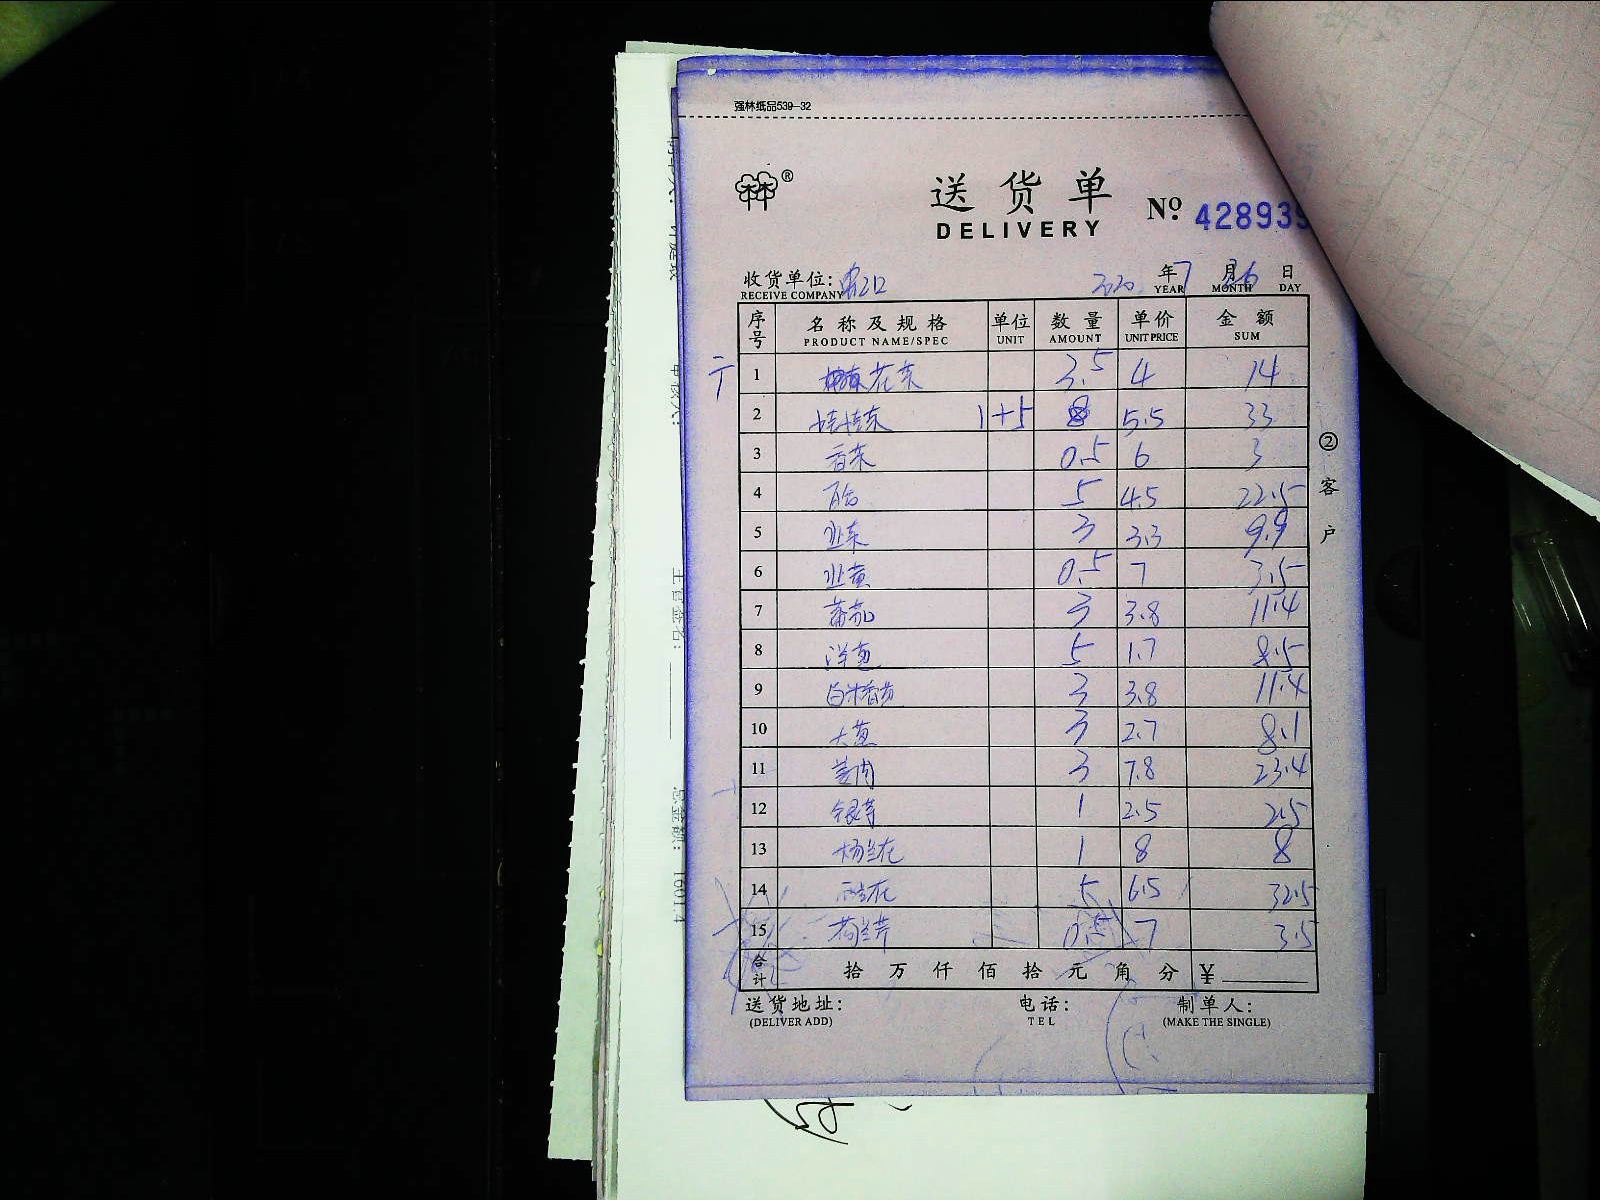 强林纸品539-32
®
送货单
DELIVERY
№ 428939
收货单位: 2020 年 7 月 26 日
RECEIVE COMPANY YEAR MONTH DAY
序号 名称及规格 单位 数量 单价 金额
PRODUCT NAME/SPEC UNIT AMOUNT UNIT PRICE SUM
1 花菜 3.5 4 14
2 娃娃菜 1+5 5.5 33
3 香菜 0.5 6 3
4 百合 5 4.5 22.5
5 韭菜 3 3.3 9.9
6 韭黄 0.5 7 3.5
7 蕃茄 3 3.8 11.4
8 洋葱 5 1.7 8.5
9 3 3.8 11.4
10 大葱 3 2.7 8.1
11 姜肉 3 7.8 23.4
12 银芽 1 2.5 2.5
13 1 8 8
14 5 6.5 32.5
15 荷兰芹 0.5 7 3.5
合计 拾 万 仟 佰 拾 元 角 分 ¥
送货地址: 电话: 制单人:
(DELIVER ADD) TEL (MAKE THE SINGLE)
② 客户
总金额: 1601.4